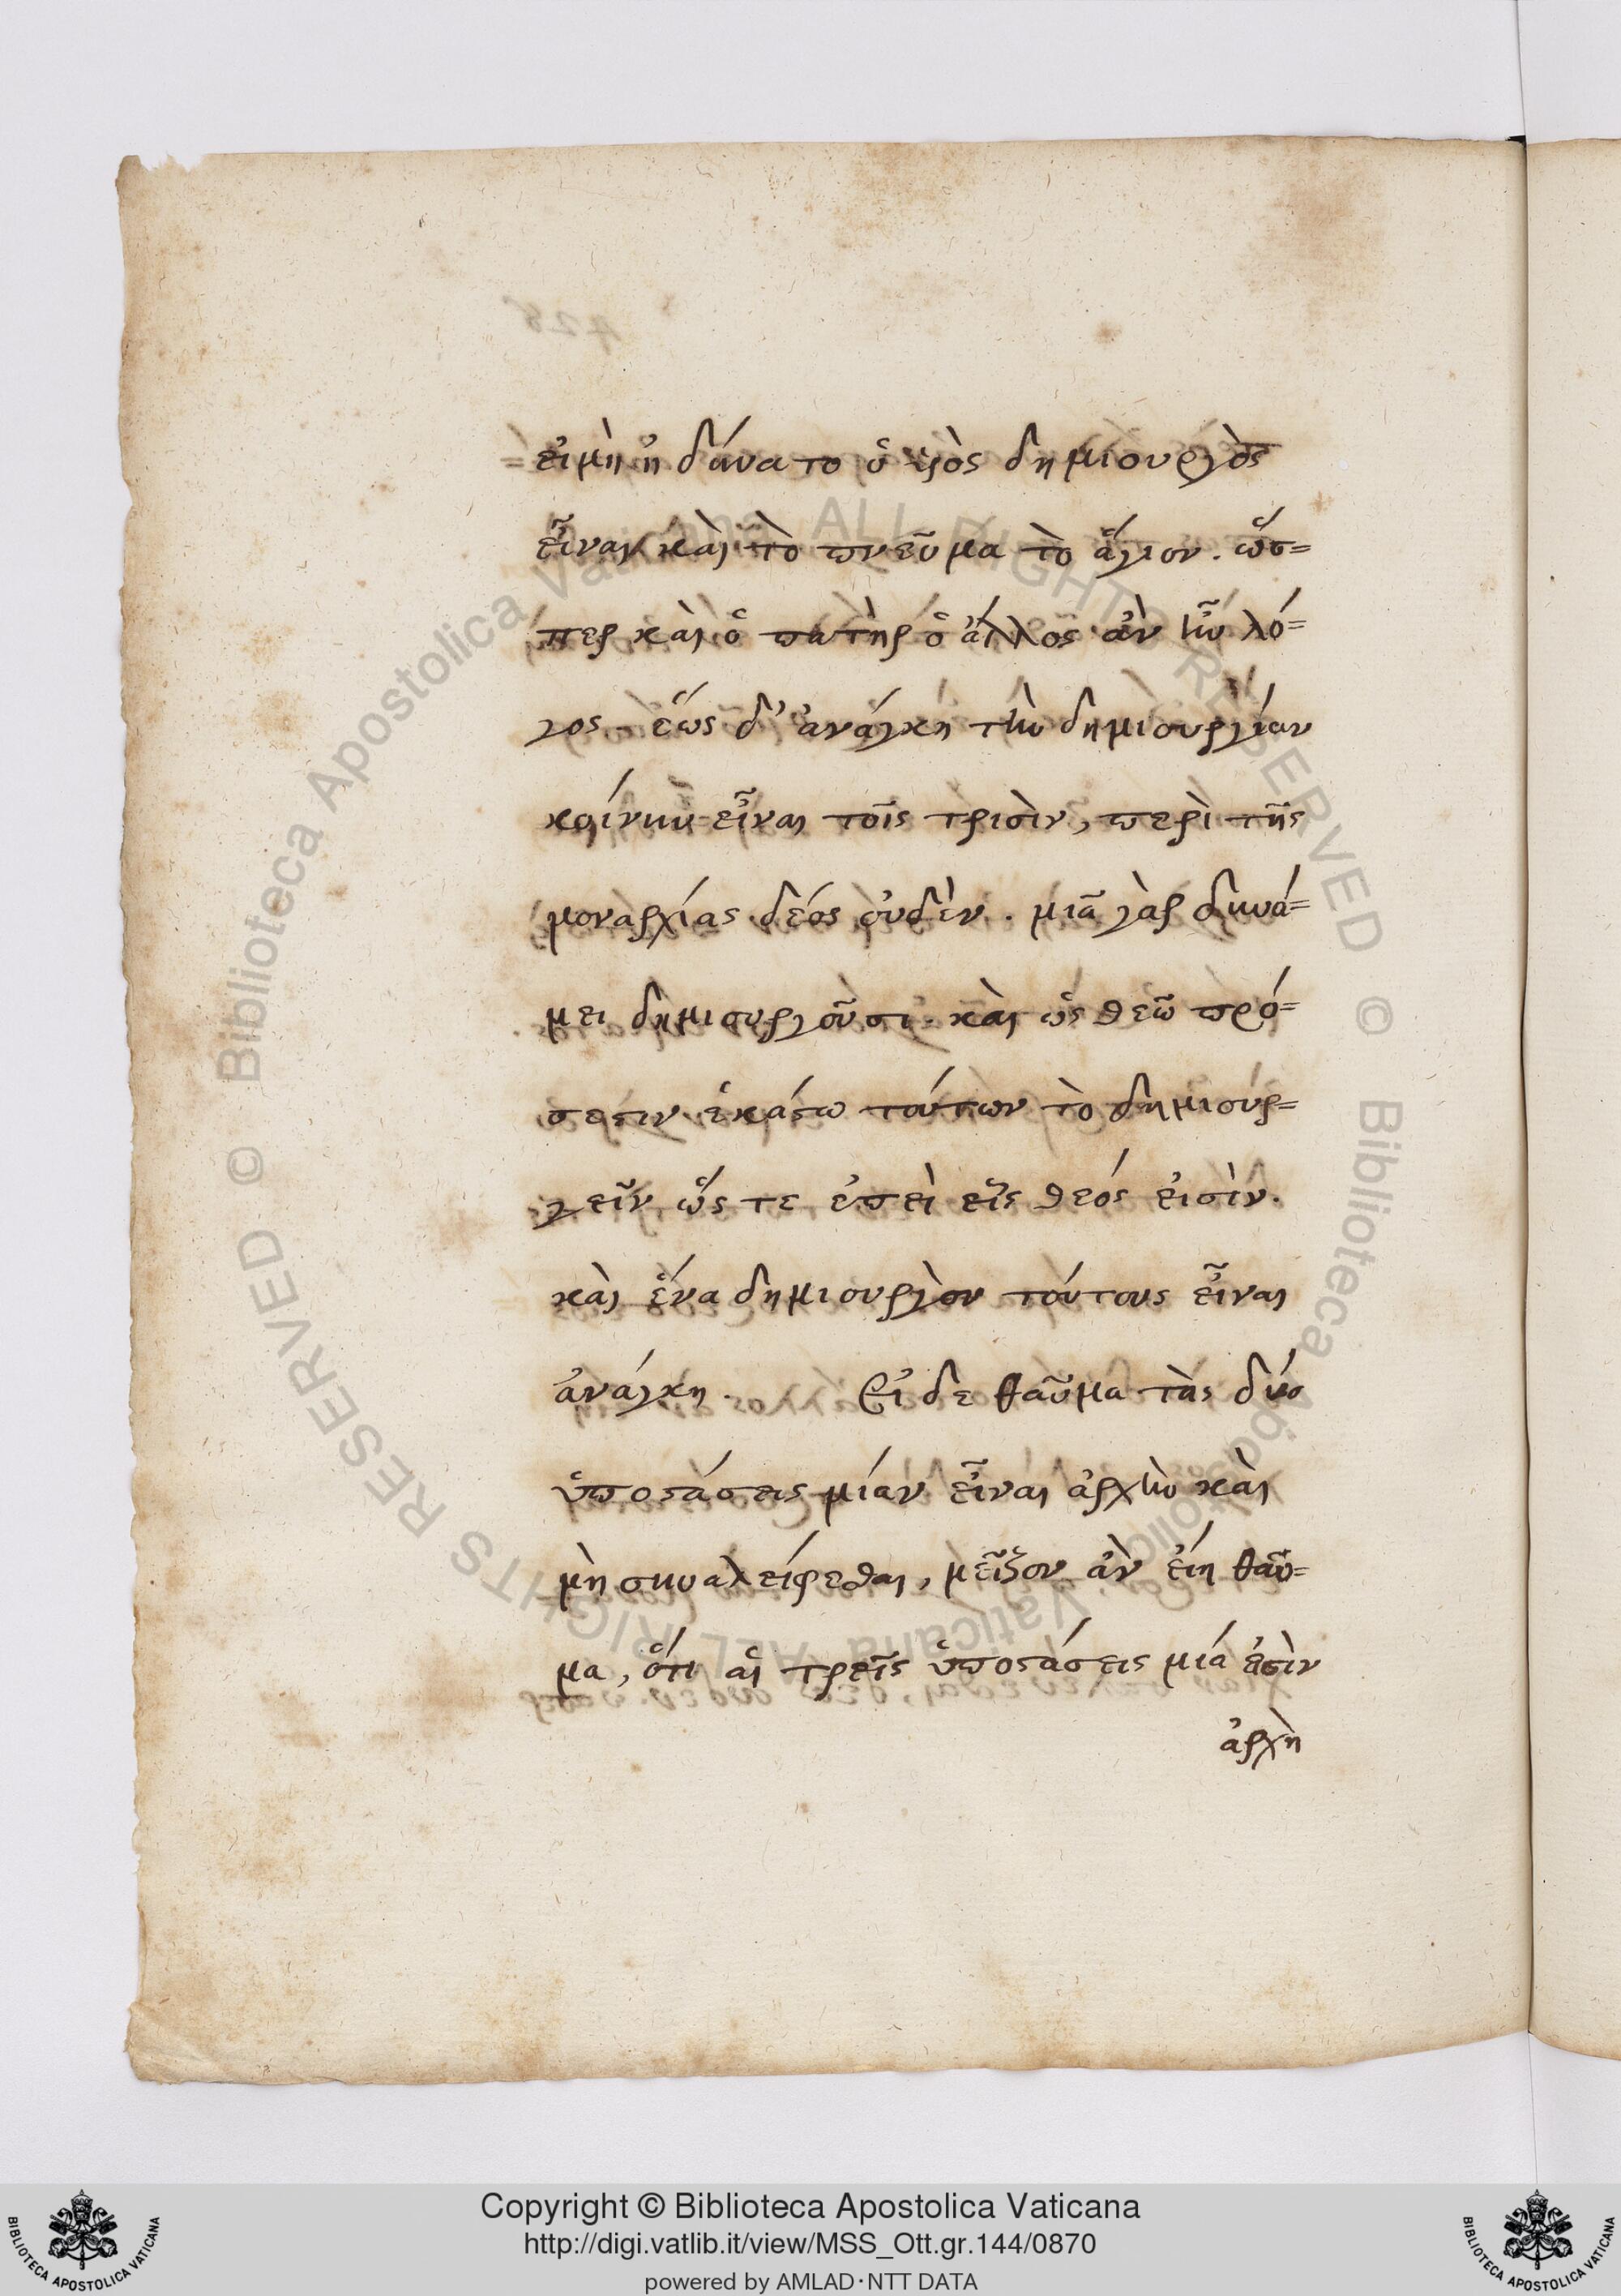 εἰ μὴ ἠδύνατο ὁ υἱὸς δημιουργὸς
εἶναι καὶ τὸ πνεῦμα τὸ ἅγιον. ὥσ=
περ καὶ ὁ πατὴρ ὁ ἄλλος ἂν ἦν λό=
γος. ἕως δ' ἀνάγκη τὴν δημιουργίαν
κοίνην εἶναι τοῖς τρισὶν, περὶ τῆς
μοναρχίας δέος οὐδὲν. μιᾶ γὰρ δυνά=
μει δημιουργοῦσι. καὶ ὡς θεῶ πρό=
σεστιν ἑκάστω τούτων τὸ δημιουρ=
γεῖν ὥς τε ἐπεὶ εἷς θεός εἰσὶν.
καὶ ἕνα δημιουργὸν τούτους εἶναι
ἀνάγκη. Εἰ δε θαῦμα τὰς δύο
ὑποστάσεις μίαν εἶναι ἀρχὴν καὶ
μὴ συναλείφεσθαι, μεῖζον ἂν εἴη θαῦ=
μα, ὅτι αἱ τρεῖς ὑποστάσεις μία ἐστὶν
ἀρχὴ
428
Copyright © Biblioteca Apostolica Vaticana
http://digi.vatlib.it/view/MSS_Ott.gr.144/0870
powered by AMLAD·NTT DATA
BIBLIOTECA APOSTOLICA VATICANA
BIBLIOTECA APOSTOLICA VATICANA
© Biblioteca Apostolica Vaticana ALL RIGHTS RESERVED
© Biblioteca Apostolica Vaticana ALL RIGHTS RESERVED